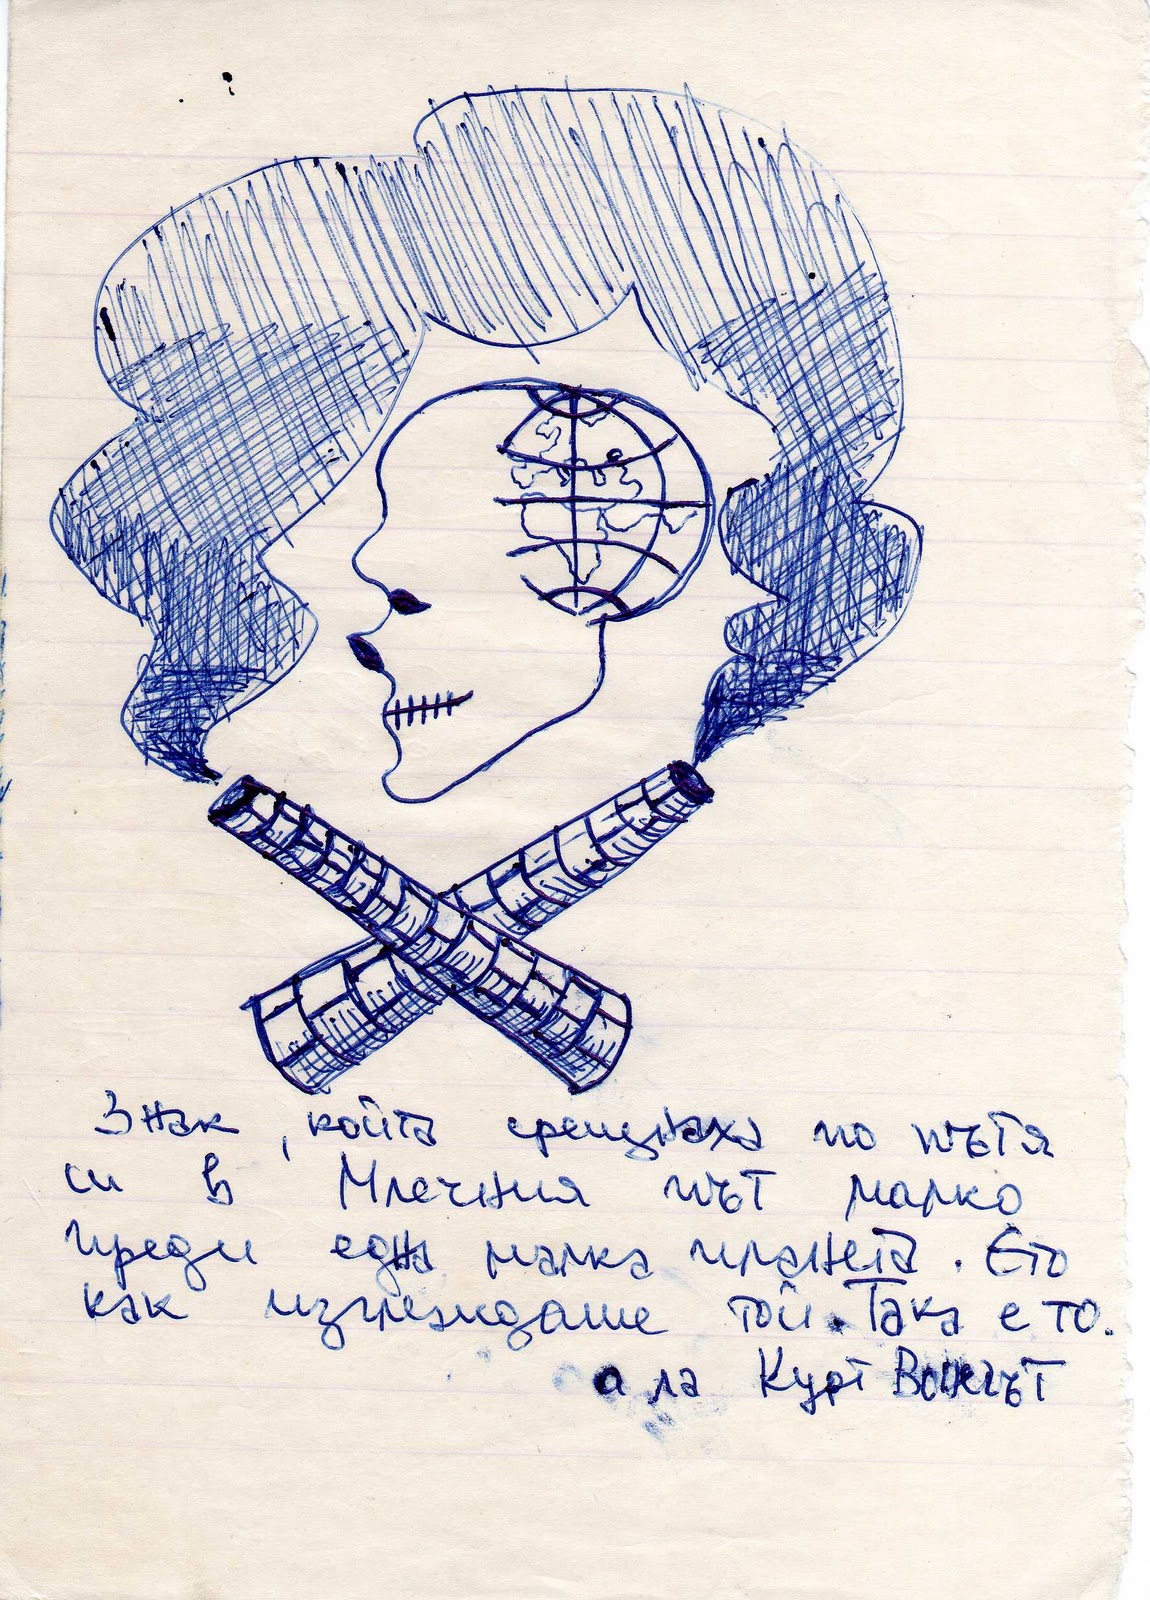 Знак, който срещнаха по пътя
си в Млечния път малко
преди една малка планета. Ето
как изглеждаше той. Така е то.
а ла Курт Вонегът